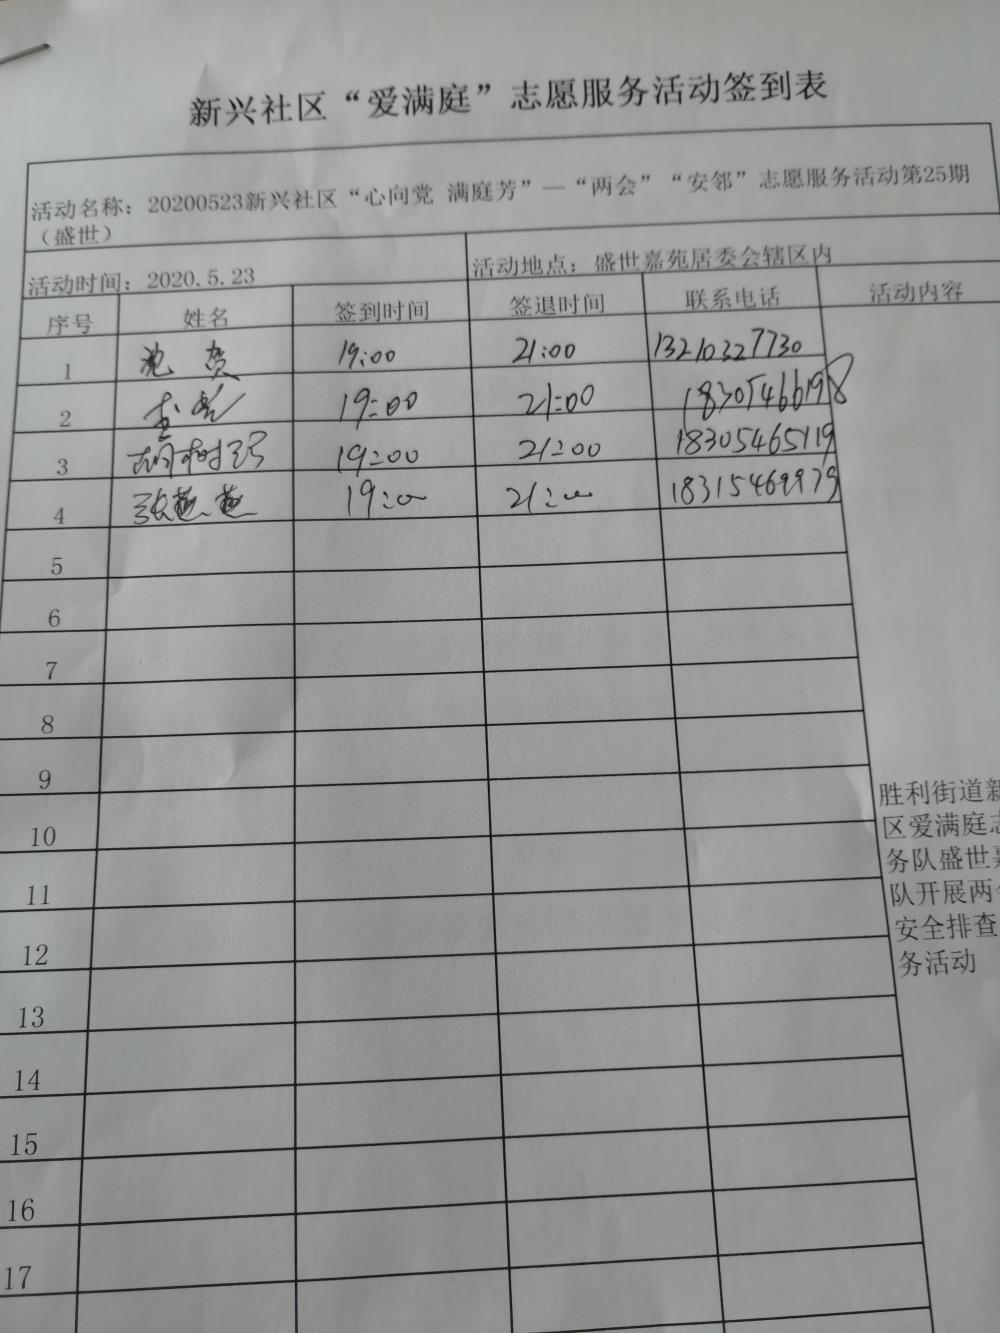 新兴社区“爱满庭”志愿服务活动签到表
活动名称：20200523新兴社区“心向党 满庭芳”—“两会”“安邻”志愿服务活动第25期
（盛世）
活动时间：2020.5.23 活动地点：盛世嘉苑居委会辖区内
序号 姓名 签到时间 签退时间 联系电话 活动内容
1 19:00 21:00 13210327730
2 19:00 21:00 18305466198
3 胡树 19:00 21:00 18305465119
4 张燕燕 19:00 21:00 18315469979
5
6
7
8
9
10
11
12
13
14
15
16
17
胜利街道新
区爱满庭志
务队盛世嘉
队开展两会
安全排查
务活动